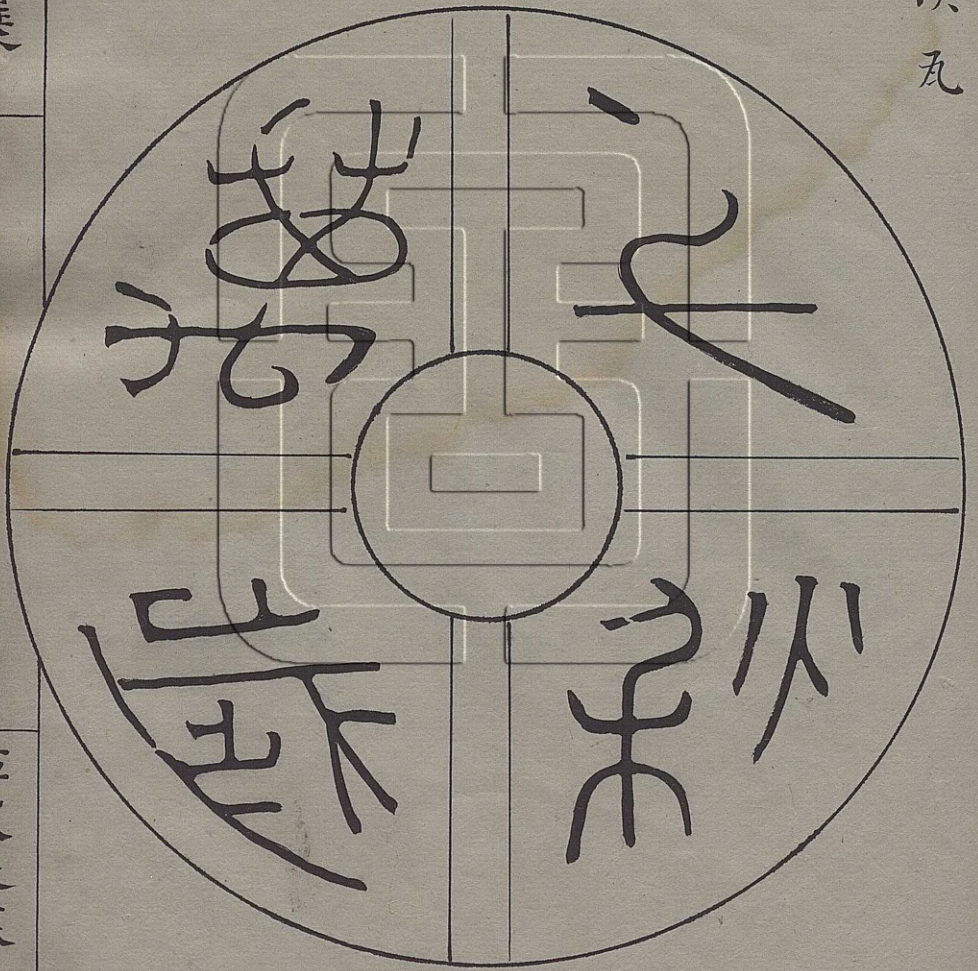 瓦
千秋
萬歲